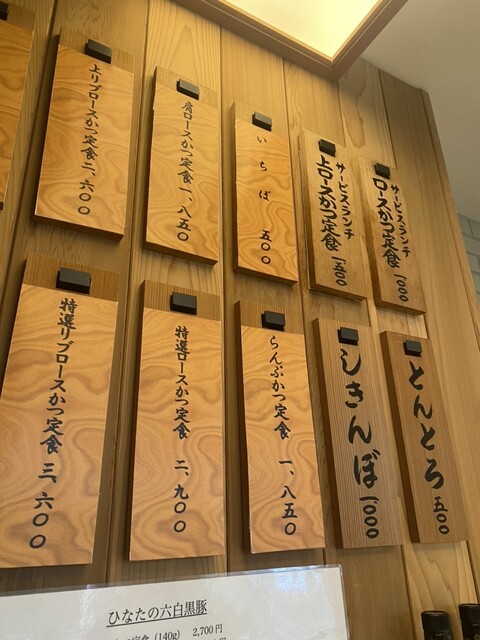 サービスランチ
ロースかつ定食 一、〇〇〇
サービスランチ
上ロースかつ定食 一、五〇〇
いちぼ 五〇〇
肩ロースかつ定食 一、八五〇
上リブロースかつ定食 二、六〇〇
とんとろ 五〇〇
しきんぼ 一、〇〇〇
らんぷかつ定食 一、八五〇
特選ロースかつ定食 二、九〇〇
特選リブロースかつ定食 三、六〇〇
ひなたの六白黒豚
定食 (140g) 2,700円